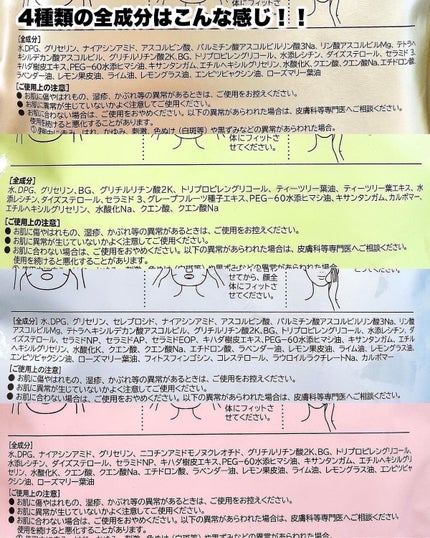 4種類の全成分はこんな感じ！！
[全成分]
水、DPG、グリセリン、ナイアシンアミド、アスコルビン酸、パルミチン酸アスコルビルリン酸3Na、リン酸アスコルビルMg、テトラヘ
キシルデカン酸アスコルビル、グリチルリチン酸2K、BG、トリプロピレングリコール、水添レシチン、ダイズステロール、セラミド3、
キハダ樹皮エキス、PEG-60水添ヒマシ油、キサンタンガム、エチルヘキシルグリセリン、水酸化K、クエン酸、クエン酸Na、エチドロン酸、
ラベンダー油、レモン果皮油、ライム油、レモングラス油、エンピツビャクシン油、ローズマリー葉油
[ご使用上の注意]
●お肌に傷やはれもの、湿疹、かぶれ等の異常があるときは、ご使用をお控えください。
●お肌に異常が生じていないかよく注意してご使用ください。
●お肌に合わない場合は、ご使用をおやめください。以下の異常があらわれた場合は、皮膚科等専門医へご相談ください。
使用を続けると悪化することがあります。
①使用中、赤み、はれ、かゆみ、刺激、色ぬけ（白斑等）や黒ずみなどの異常があらわれた場合。
[全成分]
水、DPG、グリセリン、BG、グリチルリチン酸2K、トリプロピレングリコール、ティーツリー葉油、ティーツリー葉エキス、水
添レシチン、ダイズステロール、セラミド3、グレープフルーツ種子エキス、PEG-60水添ヒマシ油、キサンタンガム、カルボマー、
エチルヘキシルグリセリン、水酸化Na、クエン酸、クエン酸Na
[ご使用上の注意]
●お肌に傷やはれもの、湿疹、かぶれ等の異常があるときは、ご使用をお控えください。
●お肌に異常が生じていないかよく注意してご使用ください。
●お肌に合わない場合は、ご使用をおやめください。以下の異常があらわれた場合は、皮膚科等専門医へご相談ください。
使用を続けると悪化することがあります。
させてから、顔全
体にフィットさ
せてください。
ください。
[全成分] 水、DPG、グリセリン、セレブロシド、ナイアシンアミド、アスコルビン酸、パルミチン酸アスコルビルリン酸3Na、リン酸ア
スコルビルMg、テトラヘキシルデカン酸アスコルビル、グリチルリチン酸2K、BG、トリプロピレングリコール、水添レシチン、ダ
イズステロール、セラミドNP、セラミドAP、セラミドEOP、キハダ樹皮エキス、PEG-60水添ヒマシ油、キサンタンガム、エチルヘ
キシルグリセリン、水酸化K、クエン酸、クエン酸Na、エチドロン酸、ラベンダー油、レモン果皮油、ライム油、レモングラス油、
エンピツビャクシン油、ローズマリー葉油、フィトスフィンゴシン、コレステロール、ラウロイルラクチレートNa、カルボマー
[ご使用上の注意]
●お肌に傷やはれもの、湿疹、かぶれ等の異常があるときは、ご使用をお控えください。
●お肌に異常が生じていないかよく注意してご使用ください。
●お肌に合わない場合は、ご使用をおやめください。以下の異常があらわれた場合は、皮膚科等専門医へご相談ください。
体にフィットさ
せてください。
[全成分]
水、DPG、ナイアシンアミド、グリセリン、ニコチンアミドモノヌクレオチド、グリチルリチン酸2K、BG、トリプロピレングリコール、
水添レシチン、ダイズステロール、セラミドNP、キハダ樹皮エキス、PEG-60水添ヒマシ油、キサンタンガム、エチルヘキシルグリ
セリン、水酸化K、クエン酸、クエン酸Na、エチドロン酸、ラベンダー油、レモン果皮油、ライム油、レモングラス油、エンピツビャ
クシン油、ローズマリー葉油
[ご使用上の注意]
●お肌に傷やはれもの、湿疹、かぶれ等の異常があるときは、ご使用をお控えください。
●お肌に異常が生じていないかよく注意してご使用ください。
●お肌に合わない場合は、ご使用をおやめください。以下の異常があらわれた場合は、皮膚科等専門医へご相談ください。
使用を続けると悪化することがあります。